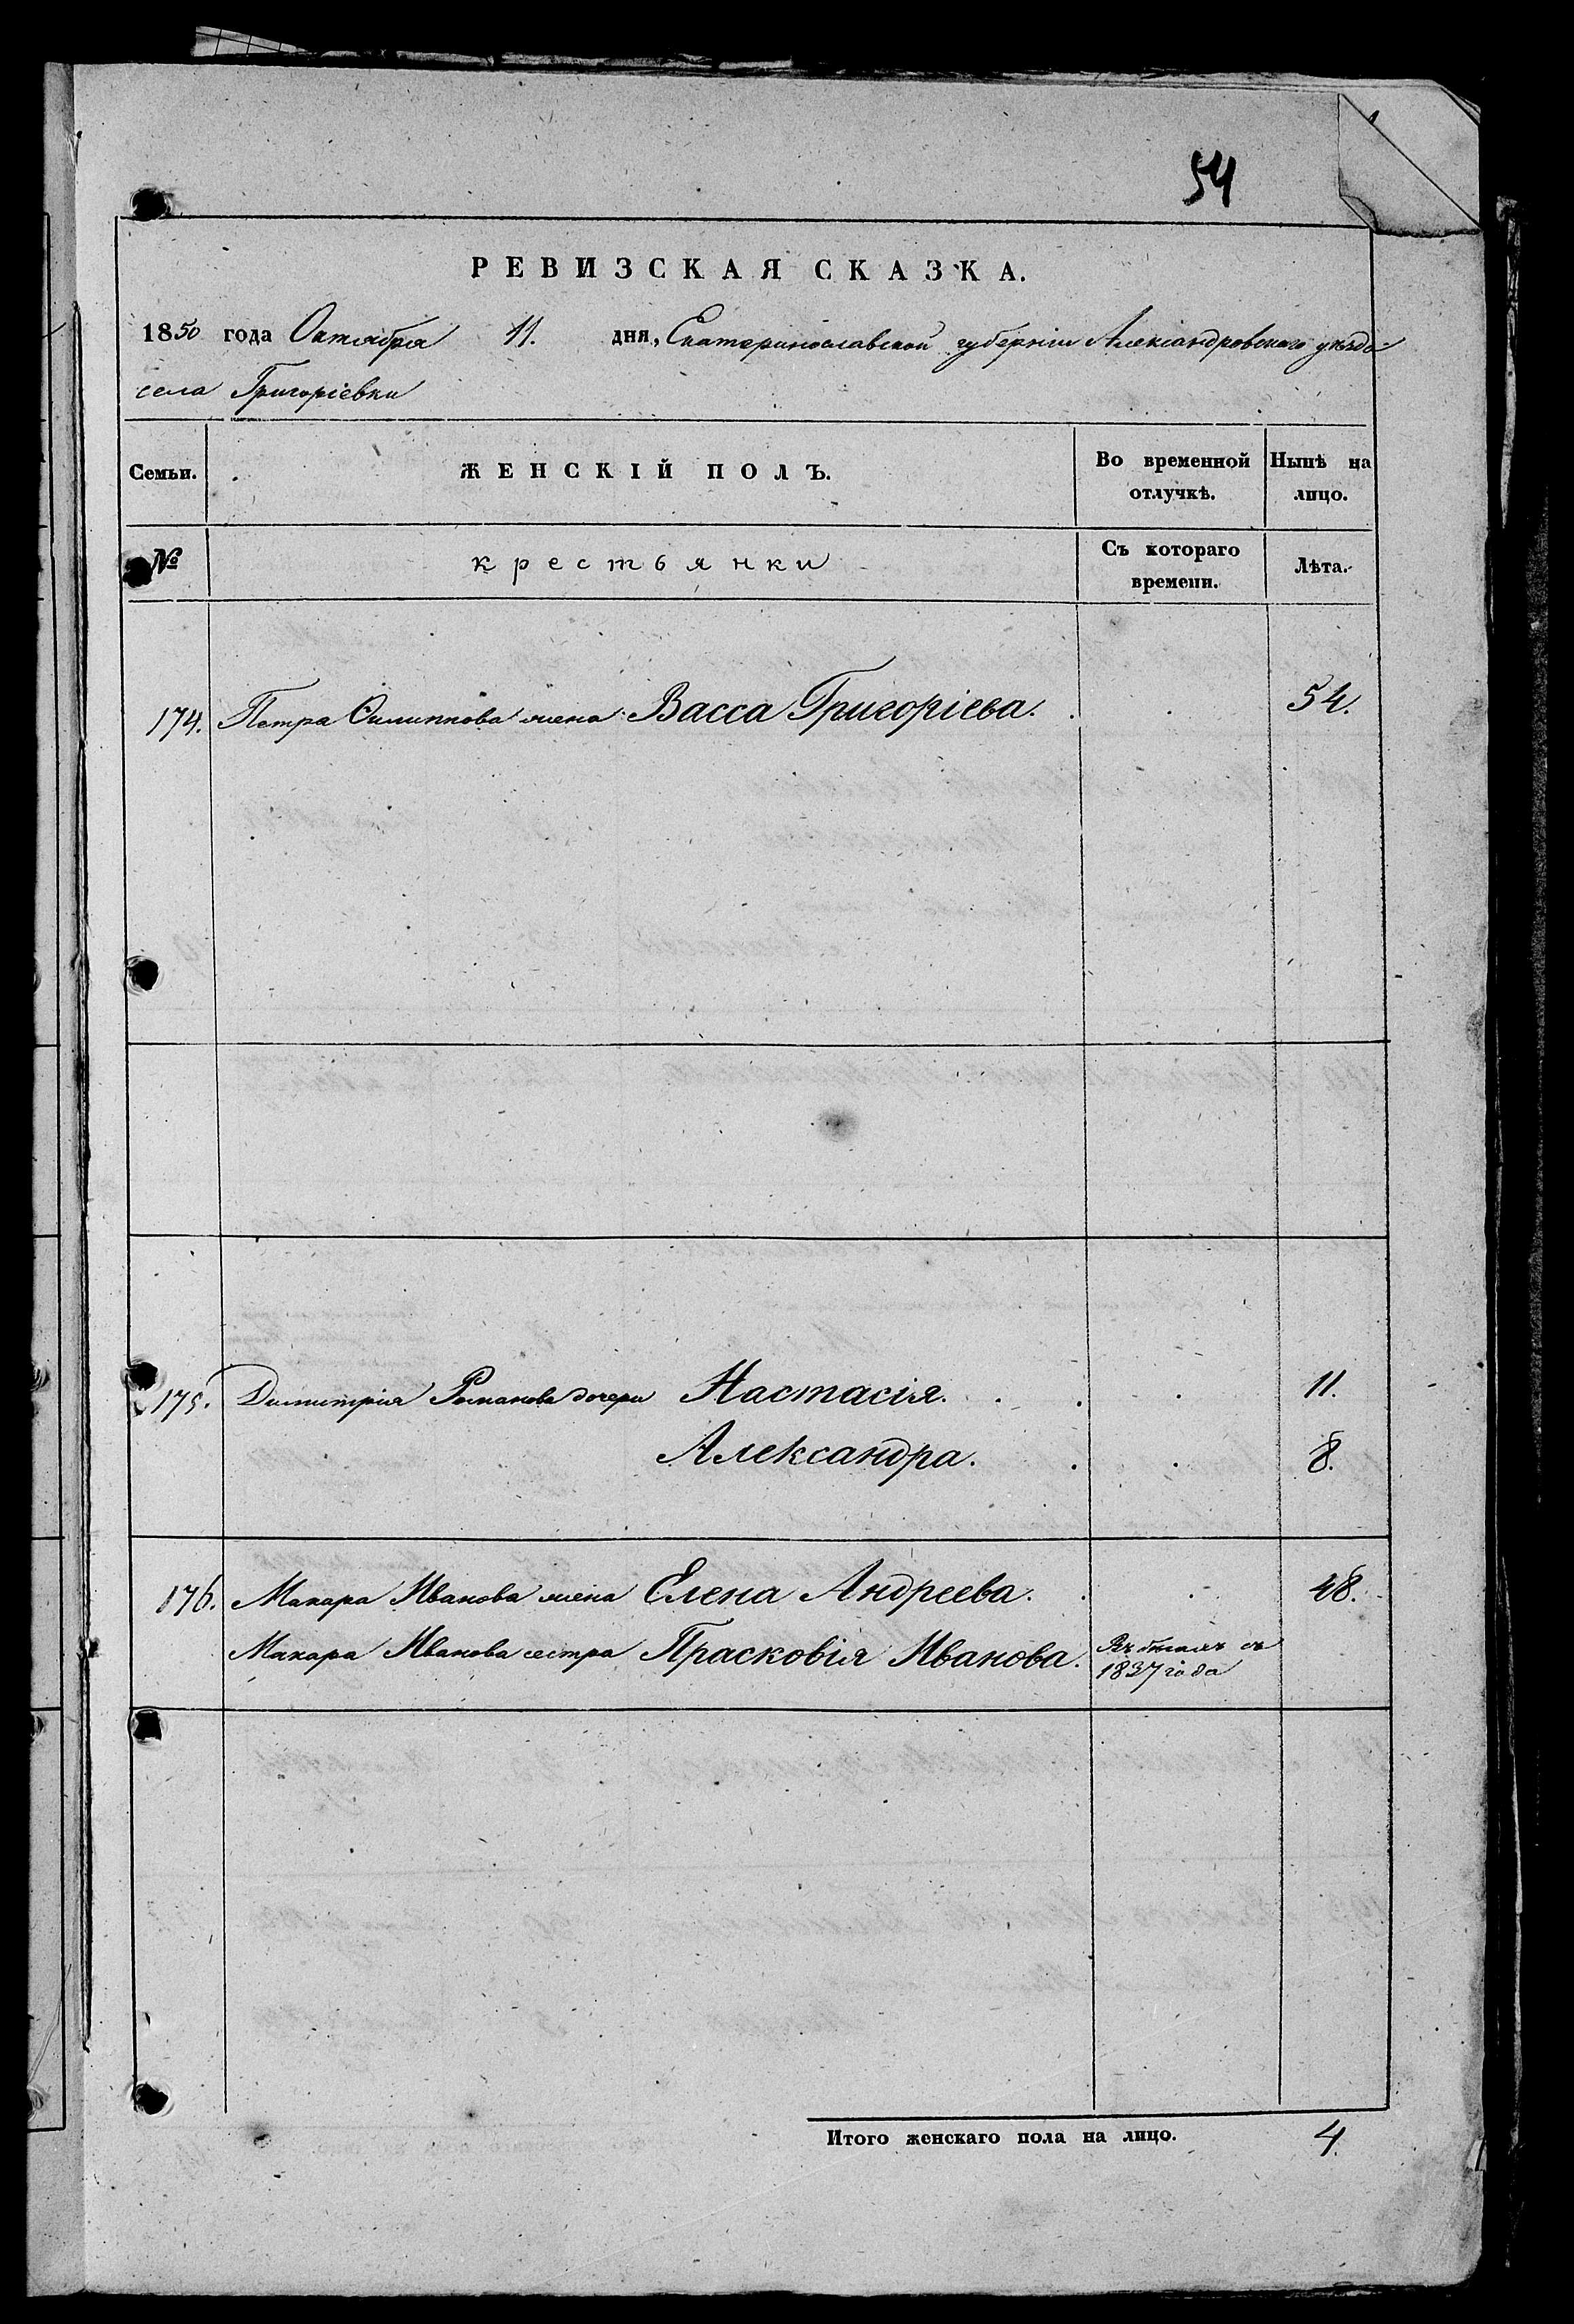 54
РЕВИЗСКАЯ СКАЗКА.
1850 года Октября 11. дня, Екатеринославской губерніи Александровскаго уѣзда
села Григоріевки
Семьи. ЖЕНСКІЙ ПОЛЪ. Во временной отлучкѣ. Нынѣ на лицо.
№ крестьянки Съ котораго времени. Лѣта.
174. Петра Филиппова жена Васса Григоріева. 54.
175. Димитрія Романова дочери Настасія. 11.
Александра. 8.
176. Макара Иванова жена Елена Андреева. 48.
Макара Иванова сестра Прасковія Иванова. Въ бѣгахъ съ
1837 года
Итого женскаго пола на лицо. 4.